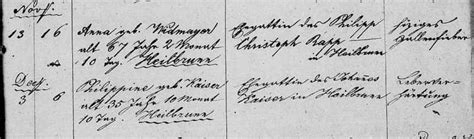 Novb.
13 16 Anna geb. Widmayer Ehegattin des Philipp hiziges
alt 67 Jahr 2 Monat Christoph Rapp Gallenfieber
10 Tag. Heilbronn in Heilbronn
Decb.
3 6 Philippine geb. Kaiser Ehegattin des Leberver-
alt 35 Jahr 10 Monat in Heilbronn härtung
10 Tag. Heilbronn